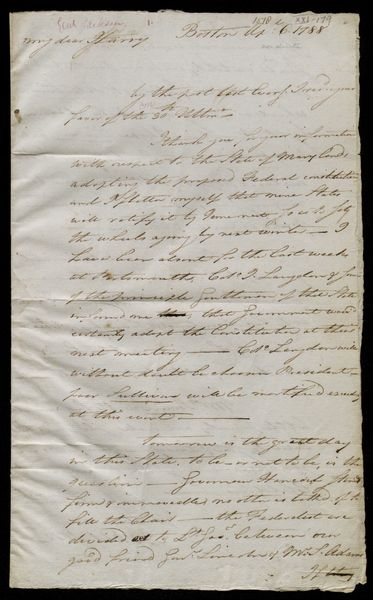 Genl Jackson 1. 1518 XXI-179
My dear Harry Boston Ap. 6. 1788
by the post last Eveng I recd your
favor of the 30th Ultmo
I thank you for your information
with respect to the State of Maryland
adopting the proposed Federal constitution
and I flatter myself that nine States
will ratify it by June next so as to set
the wheels agoing by next winter — I
have been absent for the last week
at Portsmouth, Colo J. Langdon &
of the principle Gentlemen of the State
informed me that Government would
certainly adopt the Constitution at their
next meeting — Colo Langdon will
without doubt be chosen President —
poor Sullivan will be mortified
at this event —
Tomorrow is the great day
in this State, to be or not to be, is the
question — Governor Hancock stands
firm & immoveable no other is talked of to
fill the Chair — the Federalist are
divided as to Lt Govr between our
good friend Genl Lincoln & Mr S. Adams
If